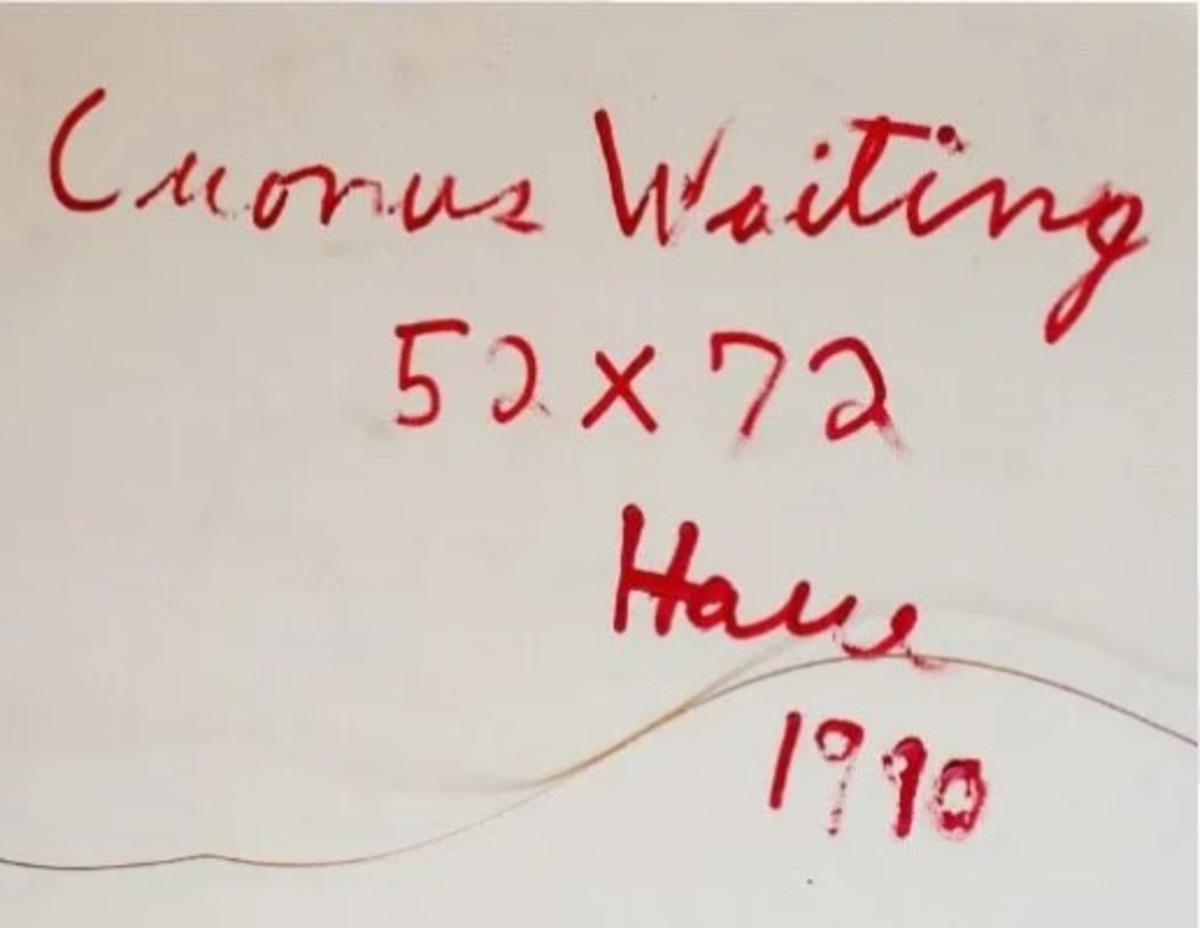 Cuonus Waiting
52 x 72
Haue
1990